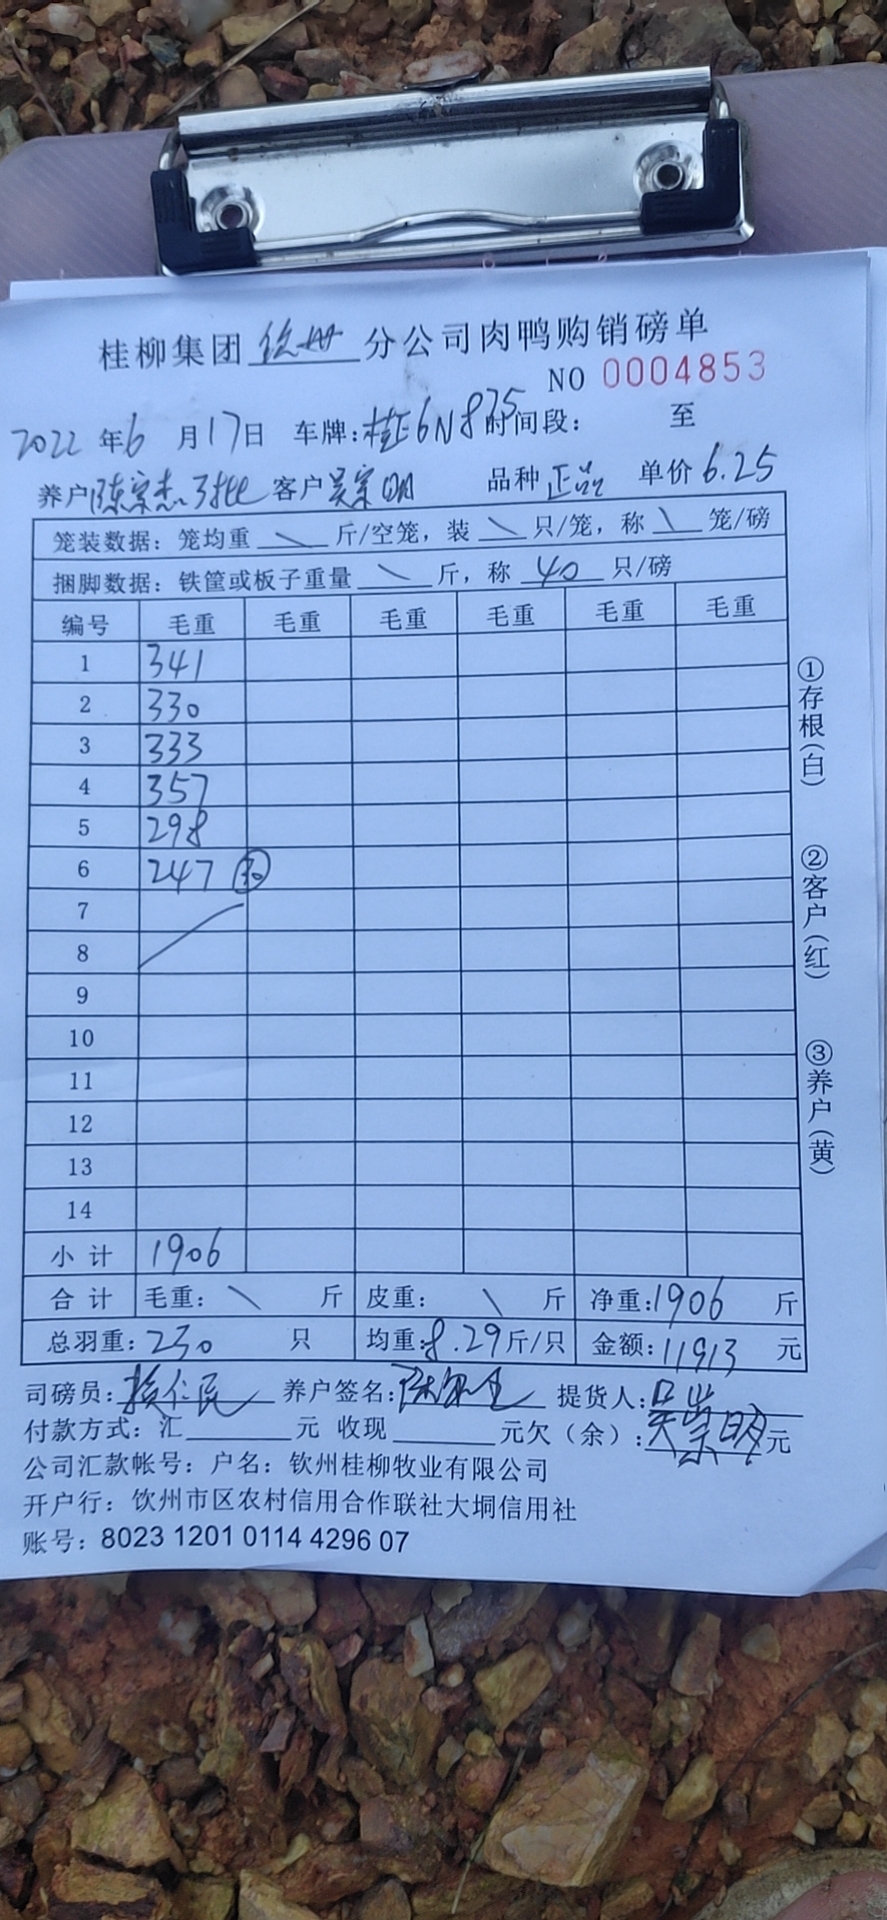 桂柳集团 钦州 分公司肉鸭购销磅单
NO 0004853
2022 年 6 月 17 日 车牌: 桂E6N875 时间段: 至
养户 陈宗杰 3批 客户 吴崇明 品种 正品 单价 6.25
笼装数据: 笼均重 \ 斤/空笼, 装 \ 只/笼, 称 \ 笼/磅
捆脚数据: 铁筐或板子重量 \ 斤, 称 40 只/磅
编号 毛重 毛重 毛重 毛重 毛重 毛重
1 341
2 330
3 333
4 357
5 298
6 247 ㉚
7
8
9
10
11
12
13
14
小计 1906
合计 毛重: \ 斤 皮重: \ 斤 净重: 1906 斤
总羽重: 230 只 均重: 8.29 斤/只 金额: 11913 元
司磅员: 养户签名: 提货人: 吴崇明
付款方式: 汇 元 收现 元欠(余): 元
公司汇款帐号: 户名: 钦州桂柳牧业有限公司
开户行: 钦州市区农村信用合作联社大垌信用社
账号: 8023 1201 0114 4296 07
①存根(白)
②客户(红)
③养户(黄)